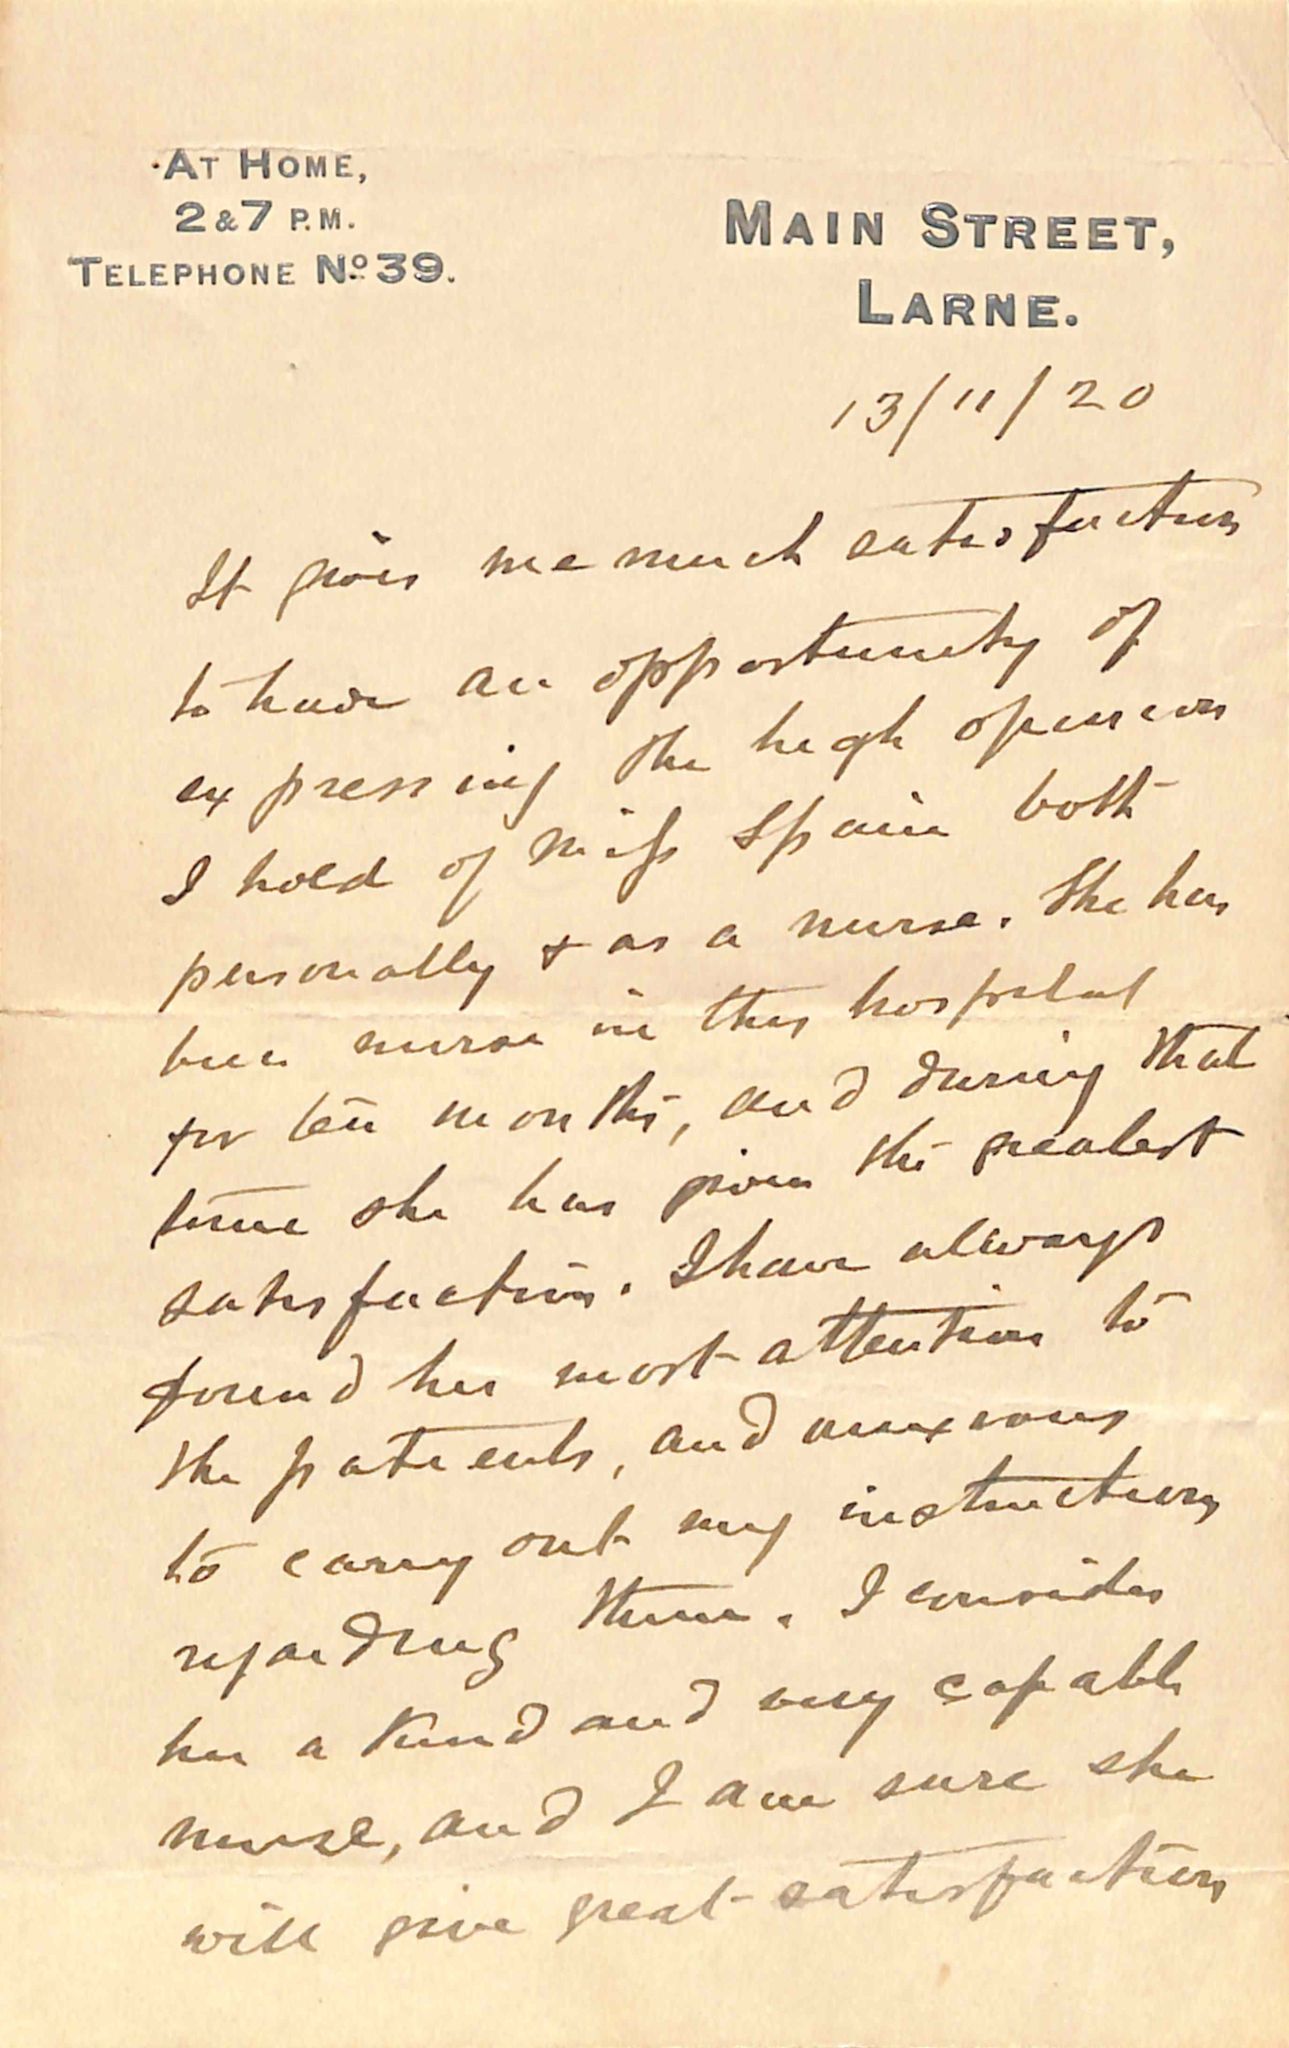 At Home,
2 & 7 P.M.
Telephone No 39.
Main Street,
Larne.
13/11/20
It gives me much satisfaction
to have an opportunity of
expressing the high opinion
I hold of Miss Spain both
personally & as a nurse. She has
been nurse in this hospital
for ten months, and during that
time she has given the greatest
satisfaction. I have always
found her most attention to
the patients, and anxious
to carry out my instructions
regarding them. I consider
her a kind and very capable
nurse, and I am sure she
will give great satisfaction